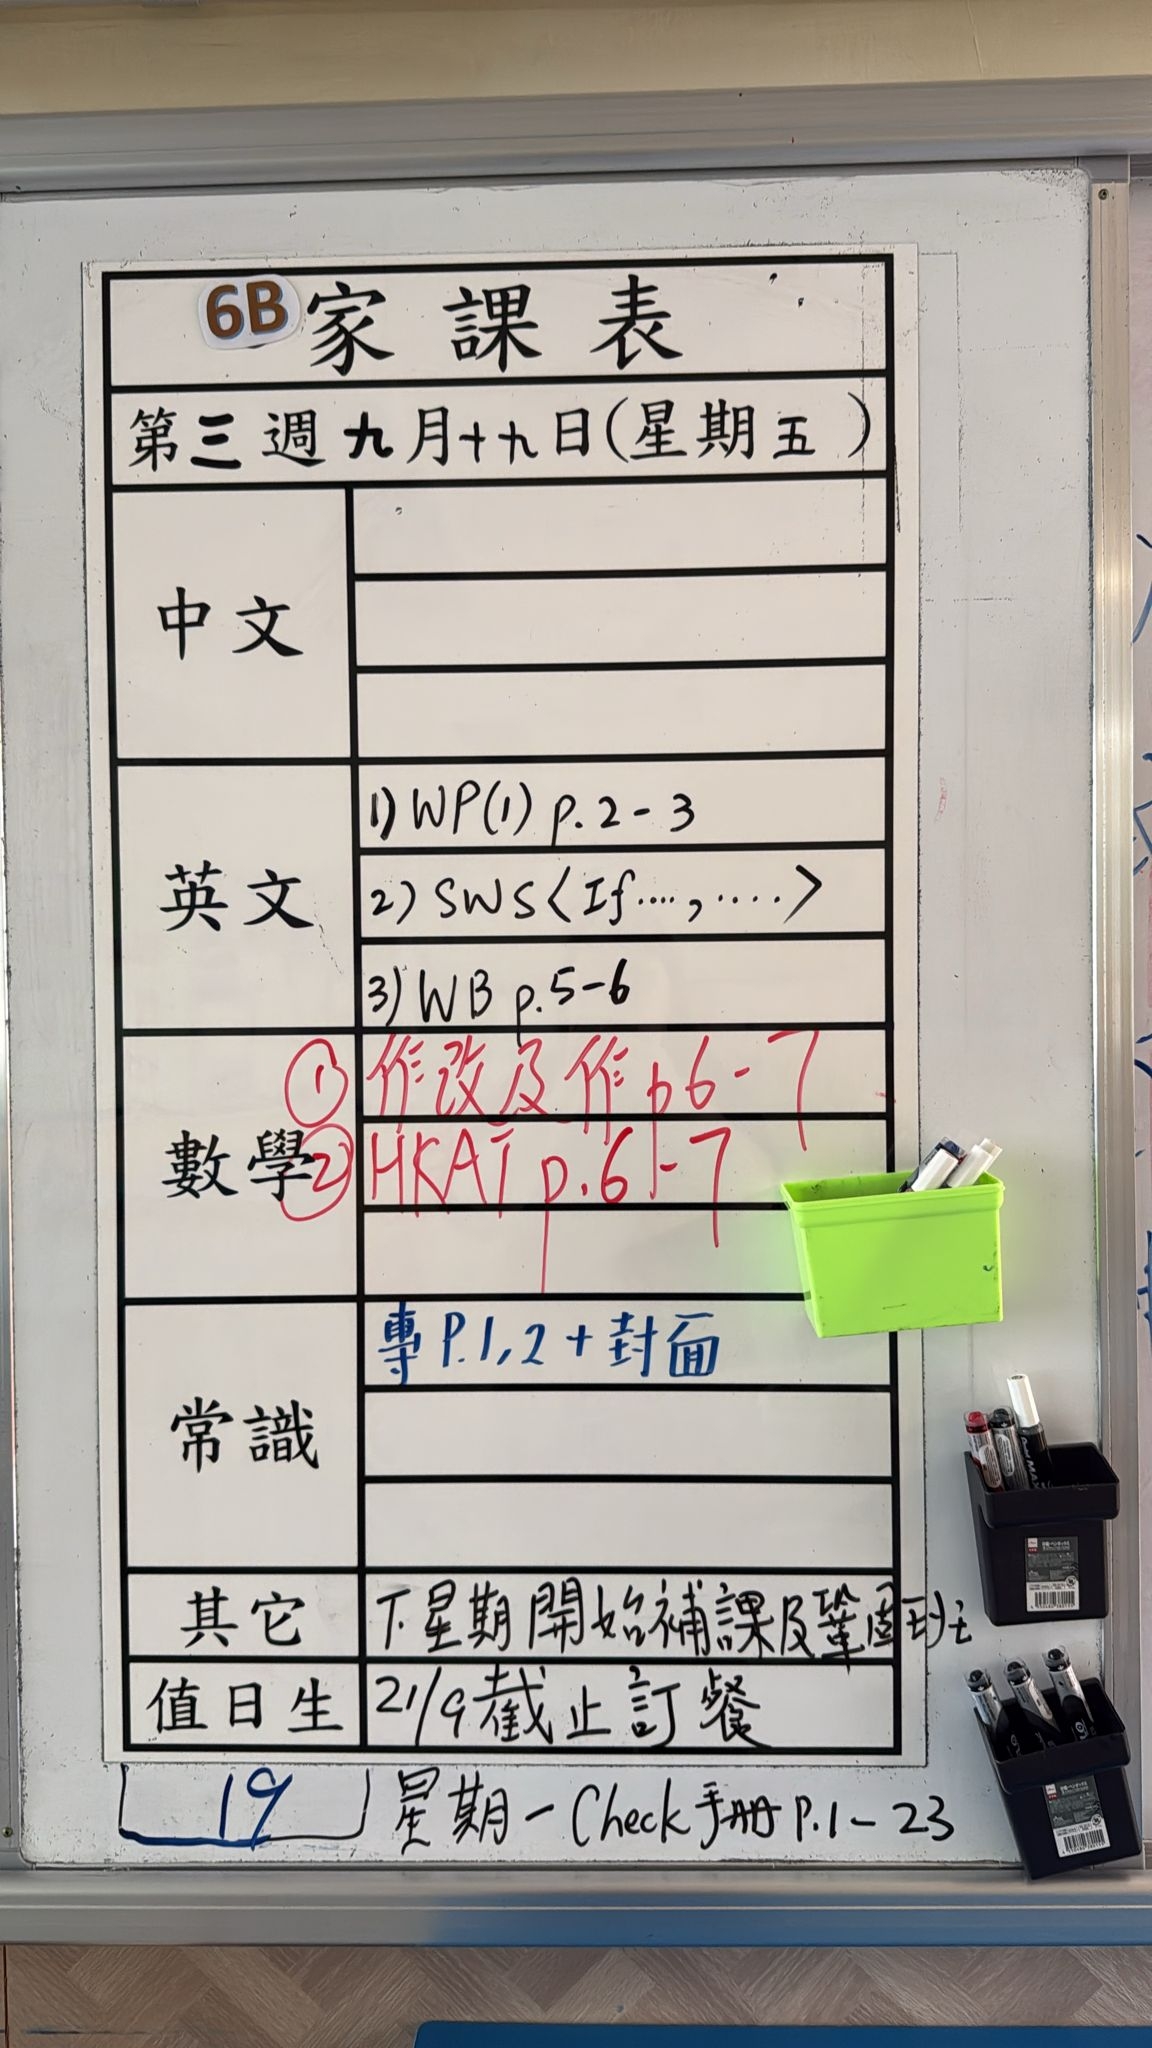 6B 家課表
第三週九月十九日(星期五)
中文
英文
1) WP(1) p.2-3
2) SWS〈If....,.....〉
3) WB p.5-6
數學
① 作改及作 p6-7
② HKAT p.6-7
常識
專 P.1,2+封面
其它
下星期開始補課及鞏固班
值日生
21/9截止訂餐
19
星期一Check手冊 P.1-23